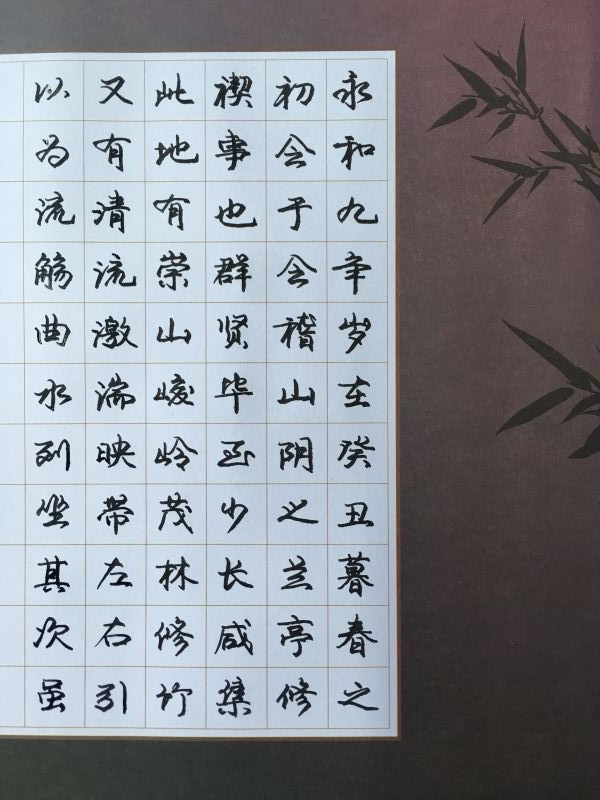 永和九年岁在癸丑暮春之
初会于会稽山阴之兰亭修
禊事也群贤毕至少长咸集
此地有崇山峻岭茂林修竹
又有清流激湍映带左右引
以为流觞曲水列坐其次虽